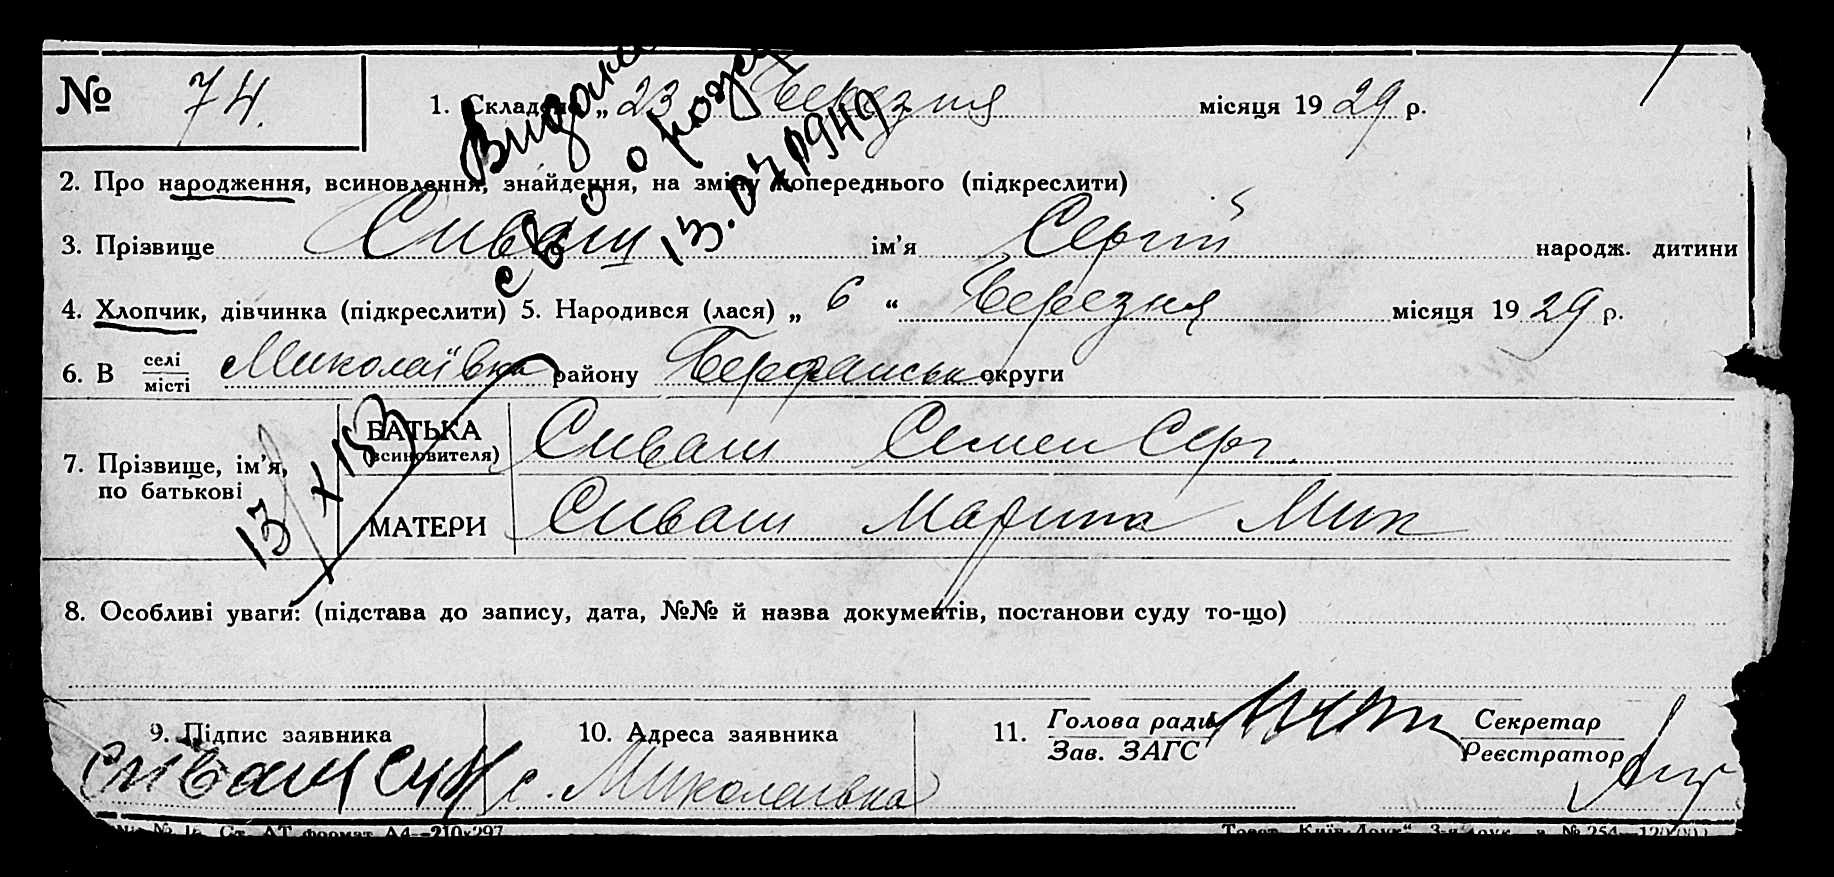 № 74. 1. Складено „ 23 Березня місяця 19 29 р.
Видано
св о рожд
13.07.1949
2. Про народження, всиновлення, знайдення, на зміну попереднього (підкреслити)
3. Прізвище Сиваш ім’я Сергій народж. дитини
4. Хлопчик, дівчинка (підкреслити) 5. Народився (лася) „ 6 “ Березня місяця 19 29 р.
6. В селі місті Миколаївка району Бердянськ округи
7. Прізвище, ім’я, по батькові
13/X 153
БАТЬКА (всиновителя) Сиваш Семен Серг.
МАТЕРИ Сиваш Марина Мик
8. Особливі уваги: (підстава до запису, дата, №№ й назва документів, постанови суду то-що)
9. Підпис заявника 10. Адреса заявника 11. Голова ради Зав. ЗАГС Секретар Реєстратор
Сиваш с. Миколаївка
Ст. АТ формат А4—210х297 Київ-Друк“ 3-я друк. № 254—